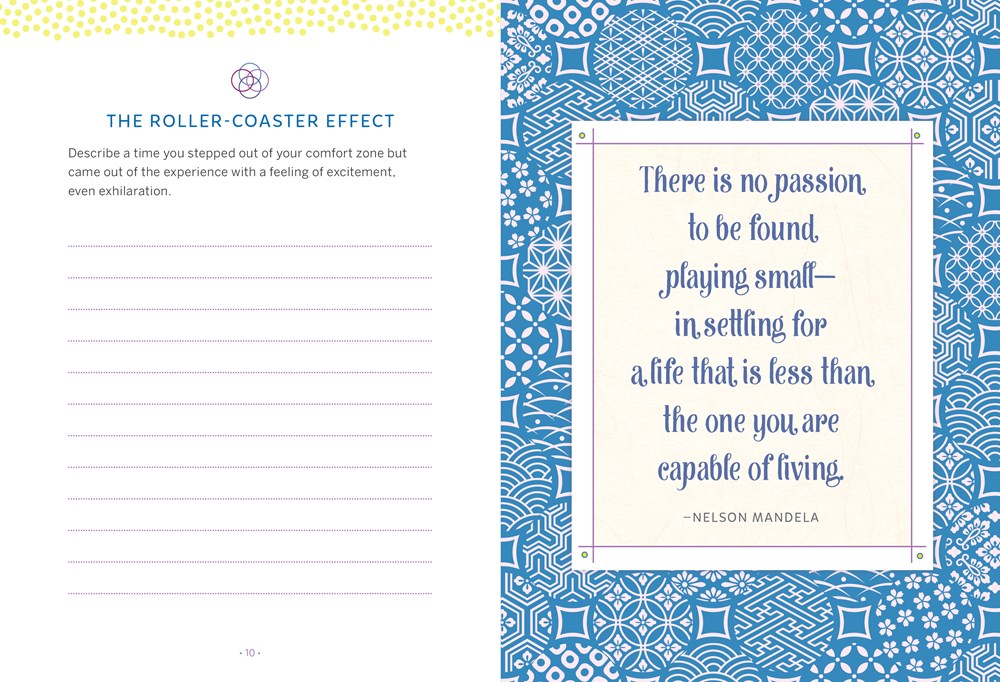 THE ROLLER-COASTER EFFECT
Describe a time you stepped out of your comfort zone but
came out of the experience with a feeling of excitement,
even exhilaration.
• 10 •
There is no passion
to be found
playing small—
in settling for
a life that is less than
the one you are
capable of living.
–NELSON MANDELA